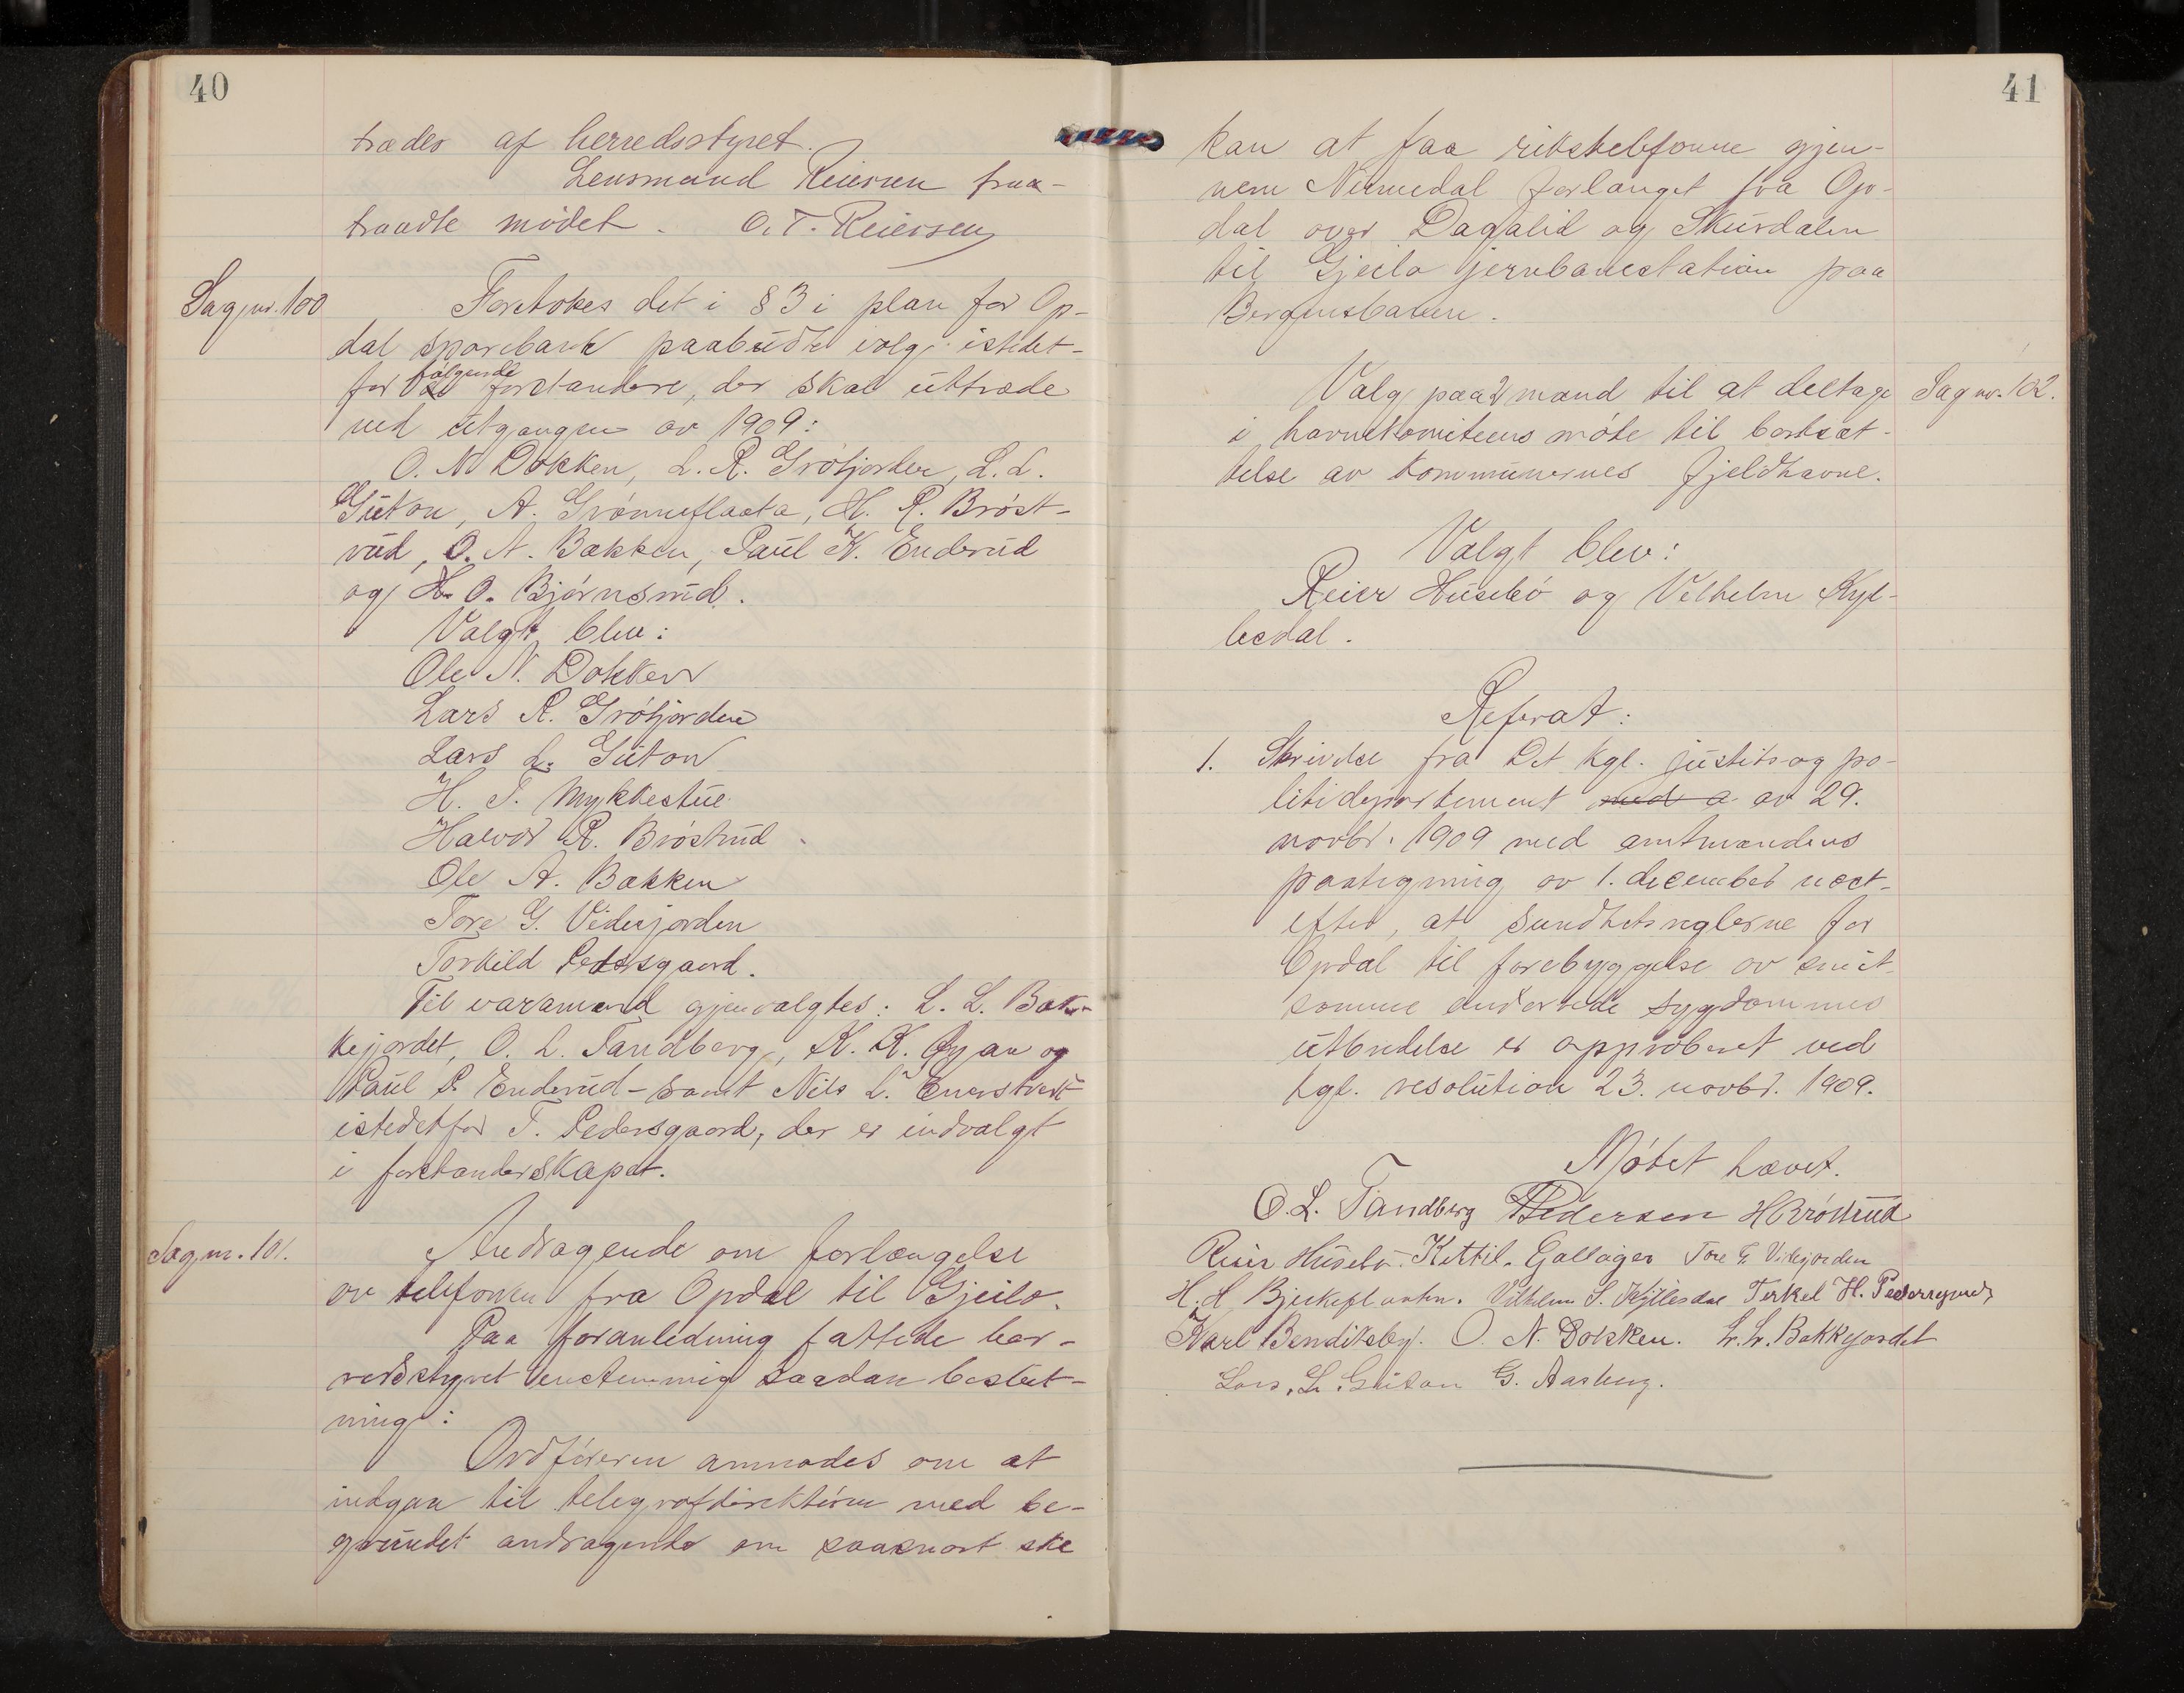 40
trædes af herredsstyret.
Lensmand Reiersen fra-
traadte mødet. O. T. Reiersen
Sag nr. 100
Foretokes det i § 3 i plan for Op-
dal sparebank paabudte valg istedet-
for følgende forstandere, der skal uttræde
ved utgangen av 1909:
O. N. Dokken, L. R. Grøtjorden, L. L.
Guton, A. Grønneflaata, H. R. Brøst-
rud, O. A. Bakken, Paul K. Enderud
og H. O. Bjørnsrud.
Valgt blev:
Ole N. Dokken
Lars R. Grøtjorden
Lars L. Guton
H. T. Mykkestue
Halvor R. Brøstrud
Ole A. Bakken
Tore G. Vidersjorden
Torkild Pedersgaard.
Til varamænd gjenvalgtes: L. L. Bak-
kejordet, O. L. Tandberg, K. K. Øyan og
Paul P. Enderud - samt Nils L. Enerstvedt
istedetfor T. Pedersgaard, der er indvalgt
i forstanderskapet.
Sag nr. 101.
Andragende om forlængelse
av telefonen fra Opdal til Gjeilo.
Paa foranledning fattede her-
redsstyret enstemmig saadan beslut-
ning:
Ordføreren anmodes om at
indgaa til telegrafdirektøren med be-
grundet andragende om saasnart ske
41
kan at faa rikstelefonne gjen-
nem Numedal forlænget fra Op-
dal over Dagalid og Skurdalen
til Gjeilo jernbanestation paa
Bergensbanen.
Valg paa 2 mænd til at deltage
Sag nr. 102.
i havnekomiteens møte til bortsæt-
telse av kommunernes fjeldhavne.
Valgt blev:
Reier Husebø og Velhelm Kyl-
lesdal.
Referat:
1. Skrivelse fra Det kgl. justits- og po-
litidepartement med a av 29.
novbr. 1909 med amtmandens
paategning av 1. december næst-
efter, at sundhetsreglerne for
Opdal til forebyggelse av smit-
somme andartede sygdommes
utbredelse er approberet ved
kgl. resolution 23. novbr. 1909.
Møtet hævet.
O. L. Tandberg Pedersen H Brøstrud
Reier Husebø. Kettil. Gallager Tore G. Vidersjorden
H. H. Bjerkeflaaten. Vilhelm S. Kjillesdal Terkel H. Pedersgaard
Karl Benditsby. O. N. Dokken. L. L. Bakkejordet
Lars. L. Guton G. Aasberg.